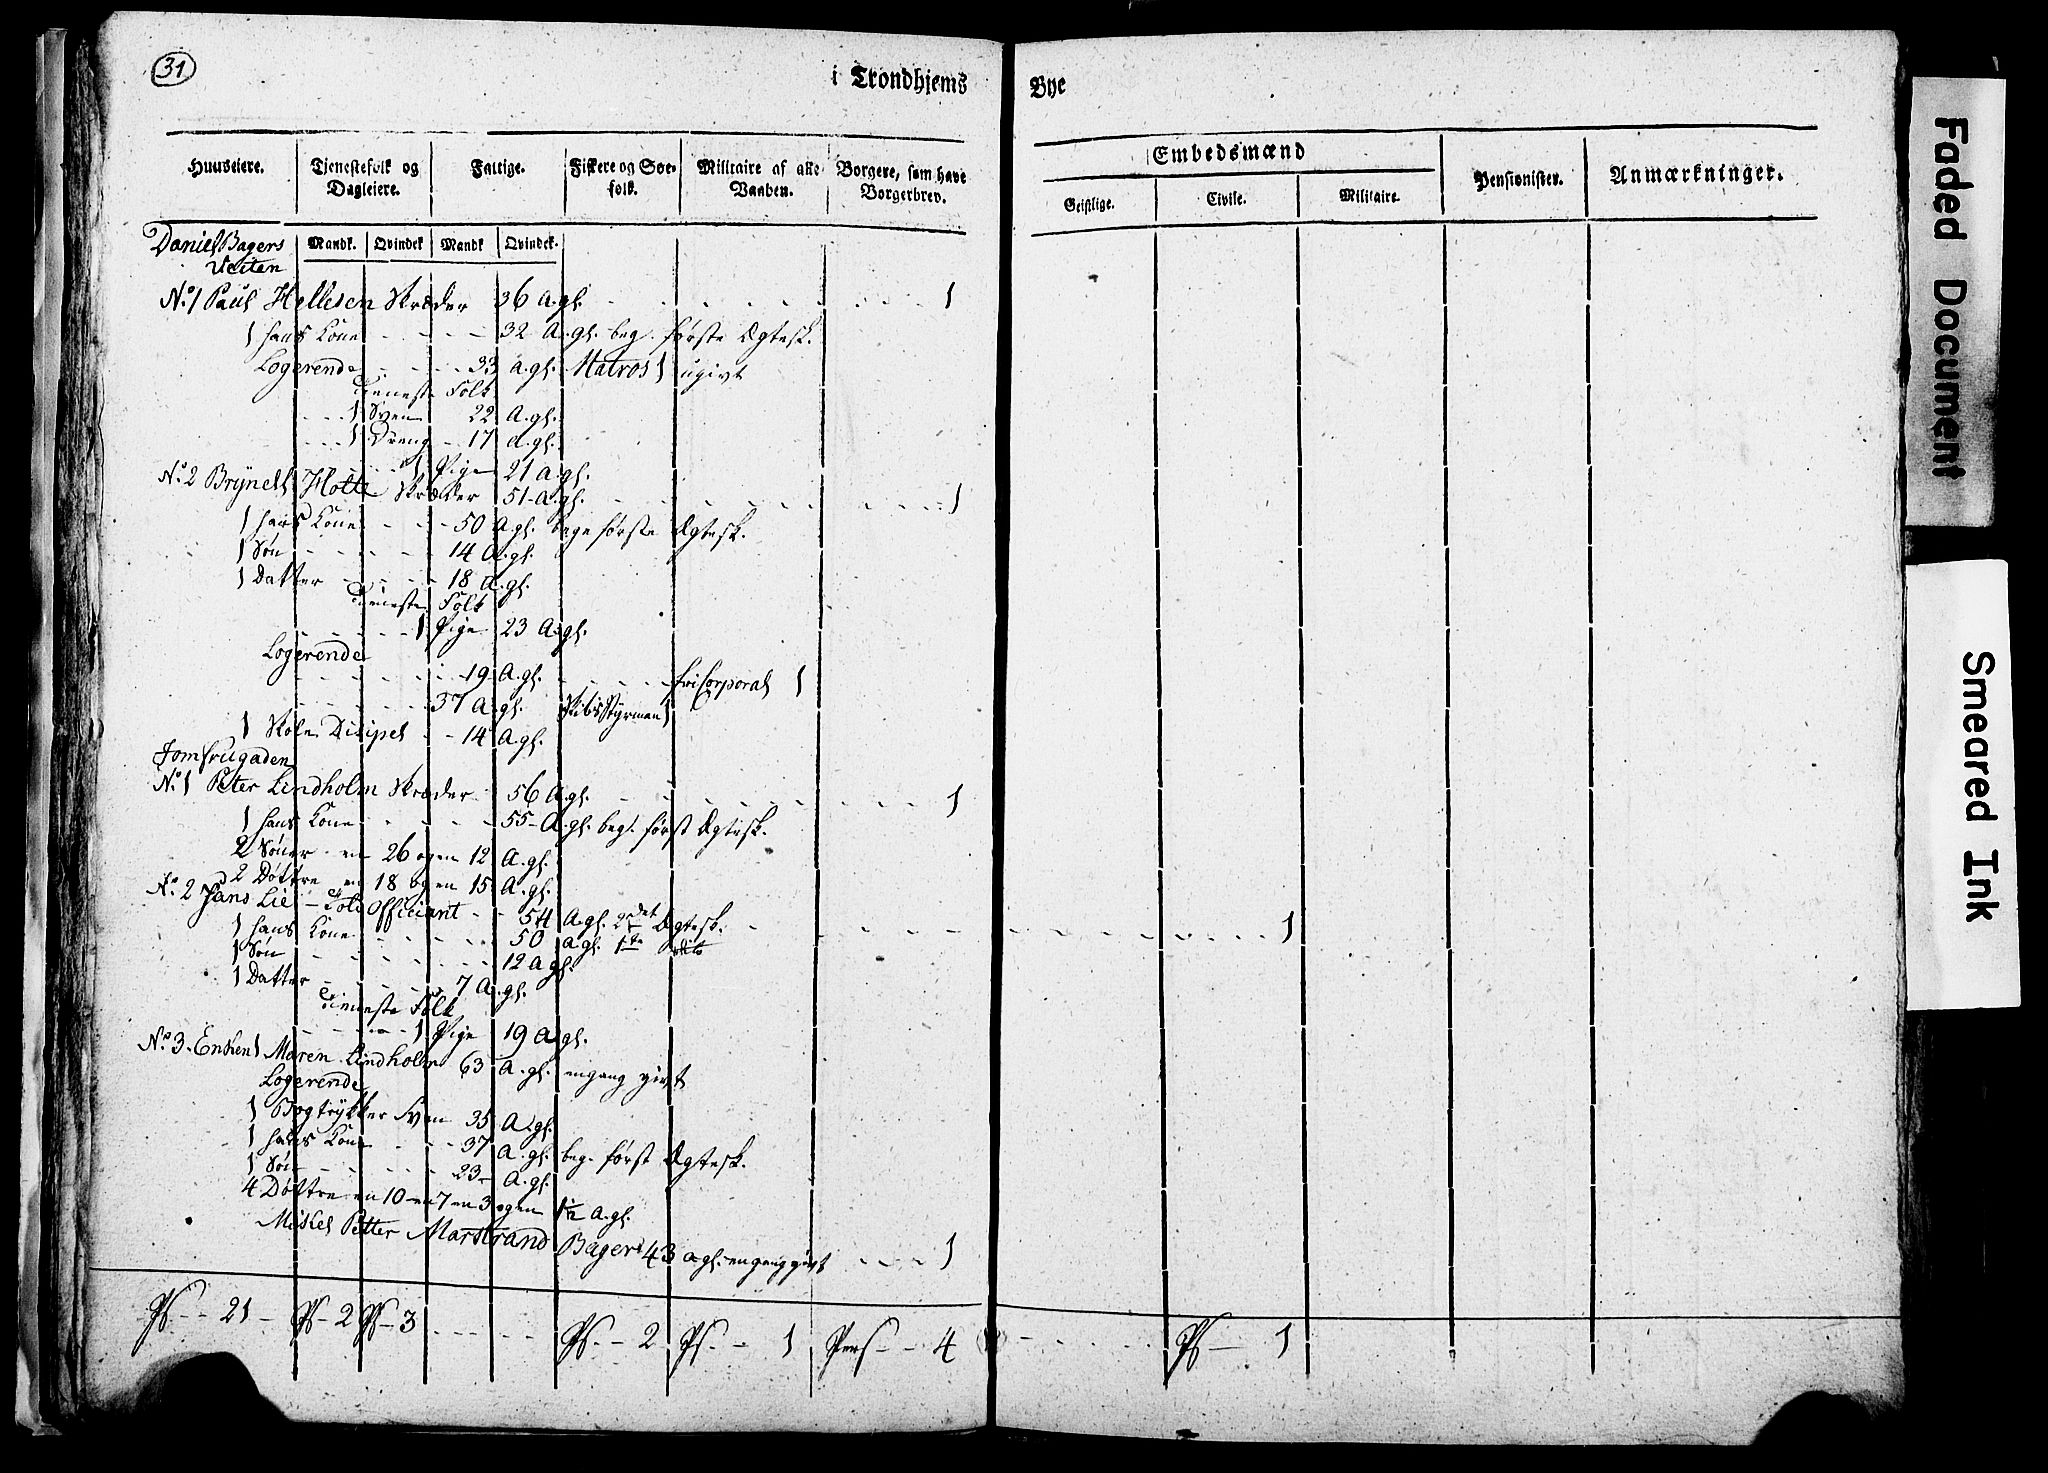 31
i Trondhjems Bye
Huuseiere. Tjenestefolk og Dagleiere. Fattige. Fiskere og Søefolk. Militaire af alle Vaaben. Borgere, som have Borgerbrev. Embedsmænd Pensionister. Anmærkninger.
Geistlige. Civile. Militaire.
Mandk. Qvindek Mandk Qvindek.
Daniel Bagers
Veiten
No 1 Paul Hellesen Skræder 36 A. gl. 1
1 hans Kone 32 A. gl. beg. første Ægtesk.
Logerende 33 A. gl. Matros 1 ugivt
Tieneste Folk
1 Sven 22 A. gl.
1 Dreng 17 A. gl.
1 Pige 21 A. gl.
No 2 Brynell Holte Skræder 51 A. gl. 1
1 hans Kone 50 A. gl. bege første Ægtesk.
1 Søn 14 A. gl.
1 Datter 18 A. gl.
Tieneste Folk
1 Pige 23 A. gl.
Logerende
19 A. gl. friCorporal 1
37 A. gl. SkibsStyrman 1
1 Skole Discipel 14 A. gl.
Jomfrugaden
No 1 Peter Lindholm Skræder 56 A. gl. 1
1 hans Kone 55 A. gl. beg. først Ægtesk.
2 Søner en 26 og en 12 A. gl.
2 Døttre en 18 og en 15 A. gl.
No 2 Hans Lie Told Officiant 54 A. gl. 2det Ægtesk. 1
1 hans Kone 50 A. gl. 1te dito
1 Søn 12 A. gl.
1 Datter 7 A. gl.
Tieneste Folk
1 Pige 19 A. gl.
No 3. Enken 1 Maren Lindholm 63 A. gl. engang givt
Logerende
1 Bogtrykker Sven 35 A. gl.
1 hans Kone 37 A. gl. beg. først Ægtesk.
1 Søn 23 A. gl.
4 Døttre en 10 en 7 en 3 og en 1½ A. gl.
Mikel Petter Marstrand Bager 43 A. gl. engang givt 1
Ps. 21 Ps 2 Ps 3 Ps. 2 Ps. 1 Pers 4 Ps 1
Faded Document
Smeared Ink